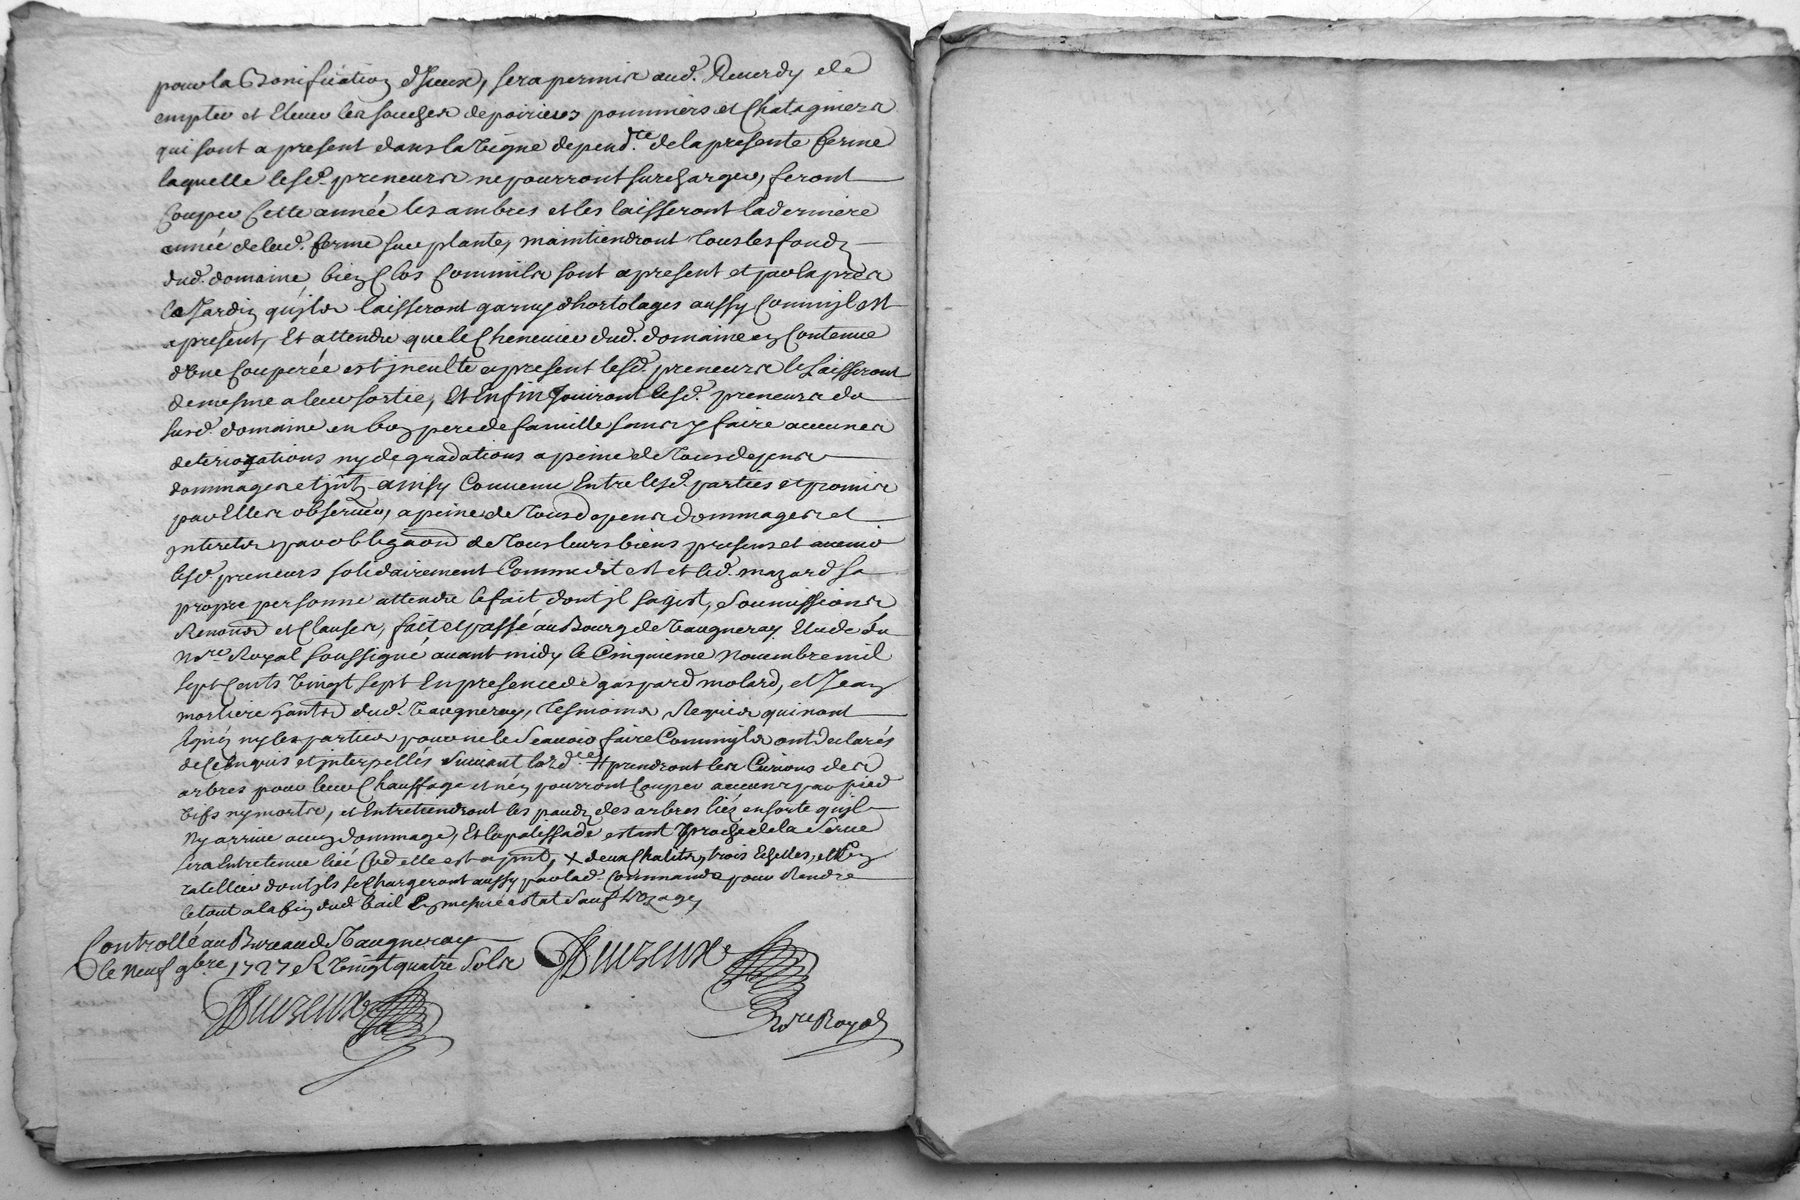 pour la Bonification d'jceux, sera permis aud. Reverdy de
empter et Elever les souches de poiriers pommiers et Chatagniers
qui sont a present dans la vigne depend.te de la presente ferme
laquelle lesd. preneurs ne pourront surcharger, feront
Couper Cette année les ambres et les laisseront la derniere
année de lad. ferme sur plante, maintiendront tous les fondz
dud. domaine bien Clos Comm'ils sont a present et par exprés
le Jardin qu'jls laisseront garny d'hortolages aussy Comm'jl est
apresent, Et attendu que le Chenevier dud. domaine en Contenue
d'Une Couperée est jnculte apresent lesd. preneurs le Laisseront
de mesme a leur sortie, Et Enfin Jouiront lesd. preneurs du
susd. domaine en bon pere de famille sans y faire aucunes
deteriogations ny degradations a peine de tous depens
dommages et jntz. ainsy Convenu Entre lesd. parties et promis
par Elles observer, a peine de tous depens dommages et
jnterets par obligaon de tous leurs biens presens et avenir
lesd. preneurs solidairement Comme dit est et led. mazard sa
propre personne attendu le fait dont jl sagist, soumissions
Renonons et Clauses, fait et passé au Bourg de Vaugneray Etude du
Nore Royal soussigné avant midy le Cinquieme Novembre mil
sept Cents vingt sept En presence de gaspard molard, et Jean
mortiere hants dud. Vaugneray, tesmoins Requis qui n'ont
signés ny les parties pour ne le sçavoir faire Comm'jls ont declarés
de Ce Enquis et jnterpellés suivant l'ord.ce # prendront les Curions des
arbres pour leur Chauffage et n'en pourront Couper aucuns par pied
vifs ny morts, et Entretiendront les paudz des arbres liés en sorte qu'jl
Ny arrive aucun dommage, Et la palissade estant proche de la Serve
sera Entretenue liée Cme elle est a pnt, x deux Chalits, trois Echelles, et Un
ratellier dont jls se Chargeront aussy par lad. Commande pour Rendre
le tout a la fin dud. bail En mesme estat sauf l'Uzage
Controllé au Bureau de Vaugneray
le neuf 9bre 1727 R vingt quatre sols
Nore Royal